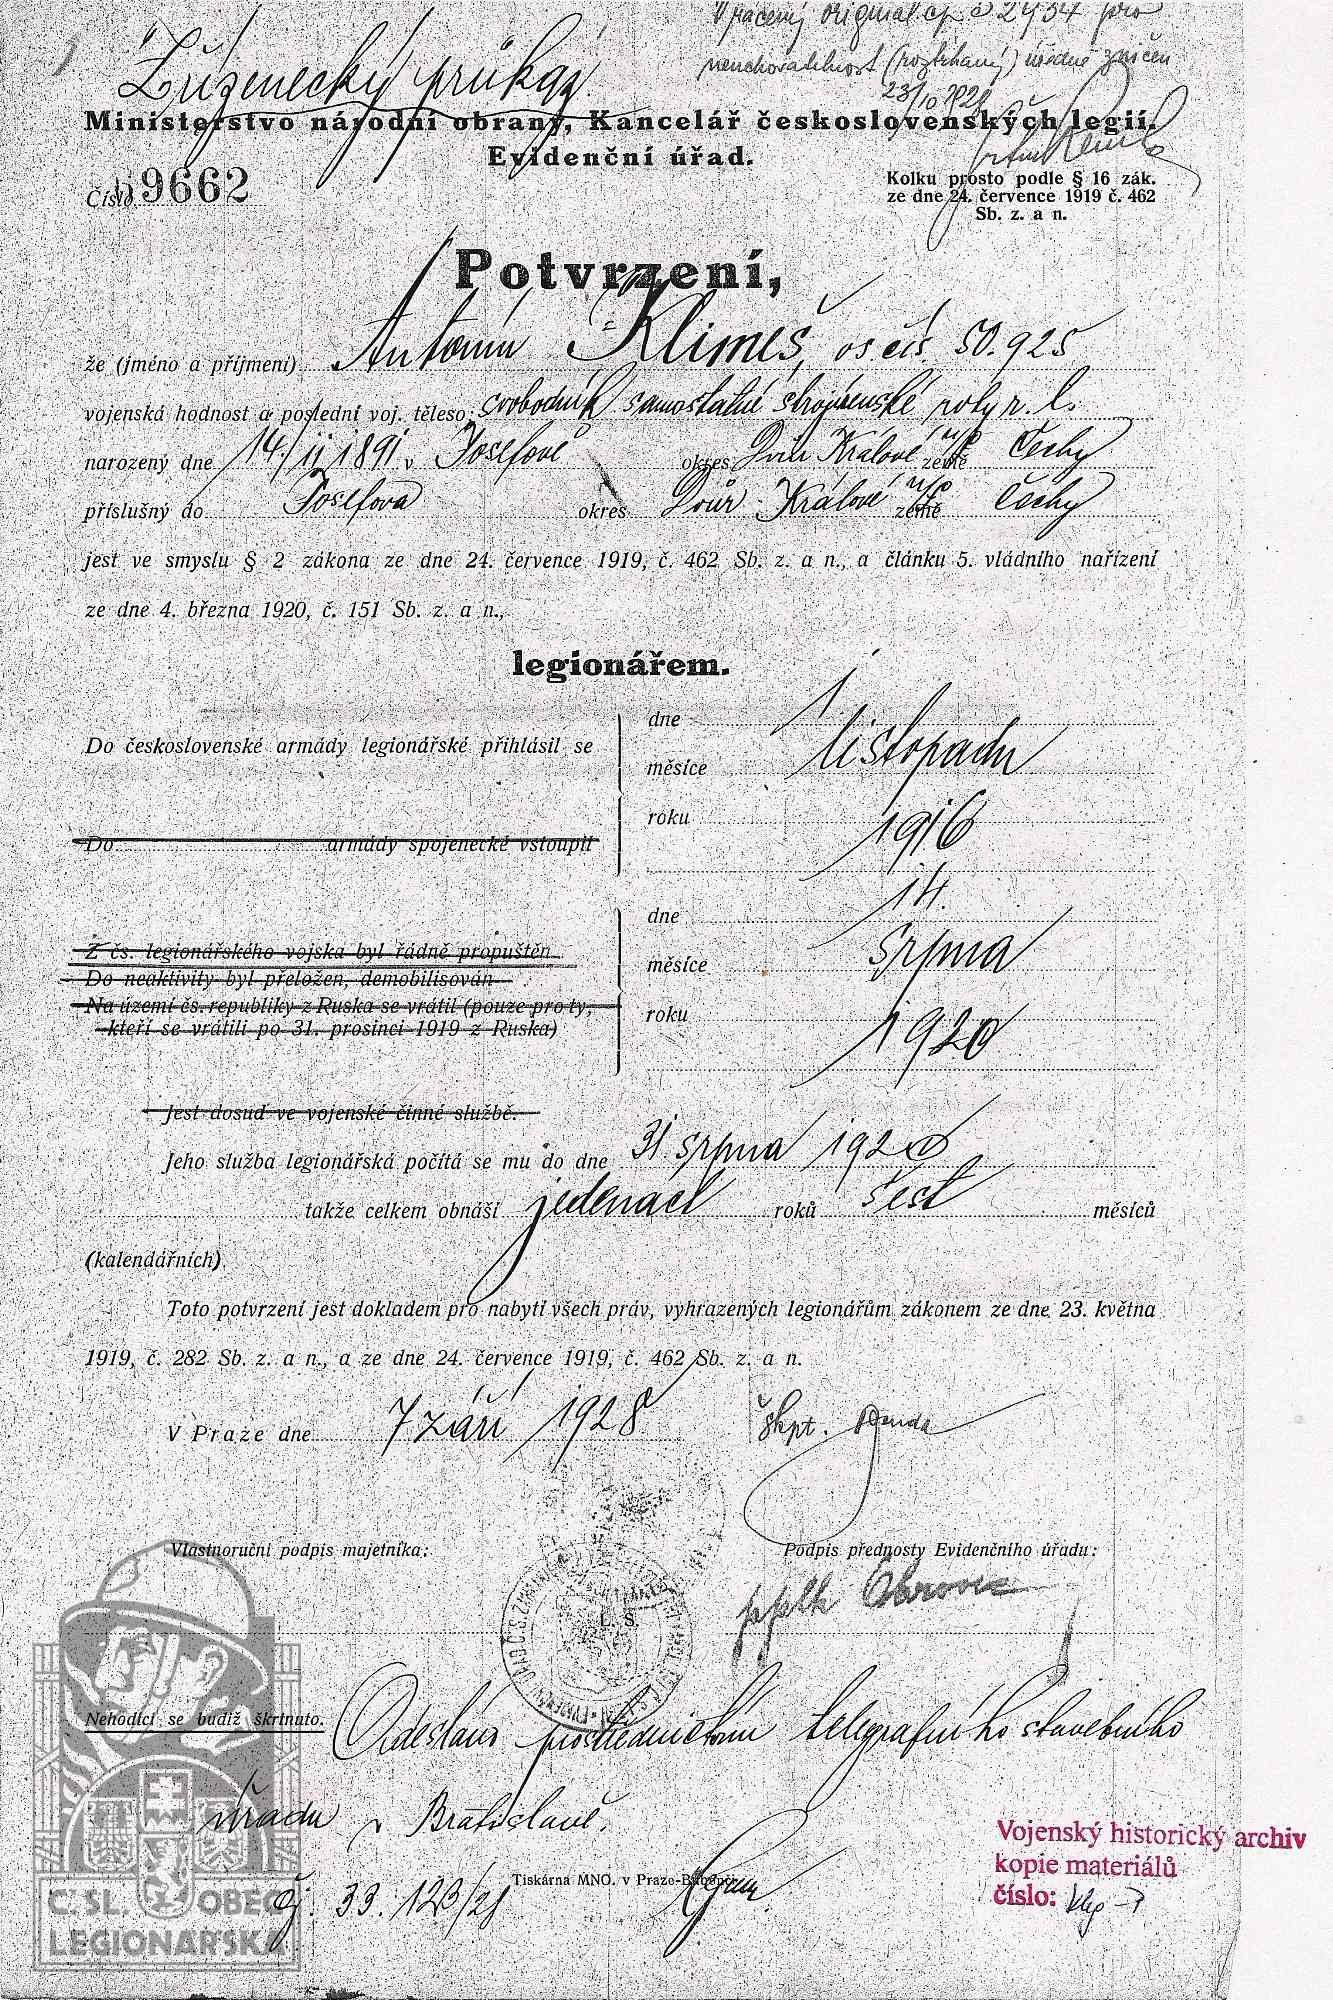 Vrácený originál čj. č 2434 pro
neuchovatelnost (roztrhaný) úředně zničen
23/10 1928
Zřízenecký průkaz
Ministerstvo národní obrany, Kancelář československých legií.
Evidenční úřad.
Číslo 69662
Kolku prosto podle § 16 zák.
ze dne 24. července 1919 č. 462
Sb. z. a n.
Potvrzení,
že (jméno a příjmení) Antonín Klimeš, os čís. 50.925
vojenská hodnost a poslední voj. těleso: svobodník samostatné strojírenské roty r. l.
narozený dne 14/II 1891 v Josefově okres Dvůr Králové n/L země Čechy
příslušný do Josefova okres Dvůr Králové n/L země Čechy
jest ve smyslu § 2 zákona ze dne 24. července 1919, č. 462 Sb. z. a n., a článku 5. vládního nařízení
ze dne 4. března 1920, č. 151 Sb. z. a n.,
legionářem.
Do československé armády legionářské přihlásil se
dne 1.
měsíce listopadu
roku 1916
Do armády spojenecké vstoupil
Z čs. legionářského vojska byl řádně propuštěn
Do neaktivity byl přeložen, demobilisován
Na území čs. republiky z Ruska se vrátil (pouze pro ty,
kteří se vrátili po 31. prosinci 1919 z Ruska)
dne 14.
měsíce srpna
roku 1920
Jest dosud ve vojenské činné službě.
Jeho služba legionářská počítá se mu do dne 31. srpna 1920
takže celkem obnáší jedenáct roků šest měsíců
(kalendářních).
Toto potvrzení jest dokladem pro nabytí všech práv, vyhrazených legionářům zákonem ze dne 23. května
1919, č. 282 Sb. z. a n., a ze dne 24. července 1919, č. 462 Sb. z. a n.
V Praze dne 7 září 1928
škpt.
Vlastnoruční podpis majetníka:
Podpis přednosty Evidenčního úřadu:
L. S.
pplk
Nehodící se budiž škrtnuto.
Odesláno prostřednictvím telegrafního stavebního
úřadu v Bratislavě.
čj. 33.123/28
Tiskárna MNO. v Praze-Bubenči
Č. SL. OBEC
LEGIONÁŘSKÁ
Vojenský historický archiv
kopie materiálů
číslo: